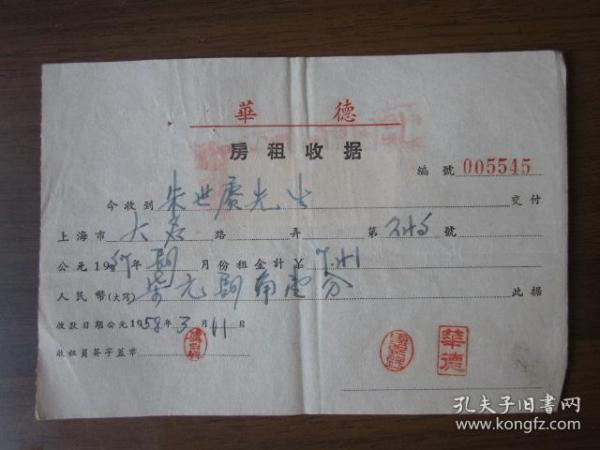 華德
房租收据
編號 005545
今收到 朱世慶先生 交付
上海市 大名 路 弄 第 號
公元19 年 月份租金計￥7.41
人民幣(大写) 柒元肆角壹分 此据
收款日期公元1958年3月11日
收租員簽字蓋章
華德
孔夫子旧书网
www.kongfz.com